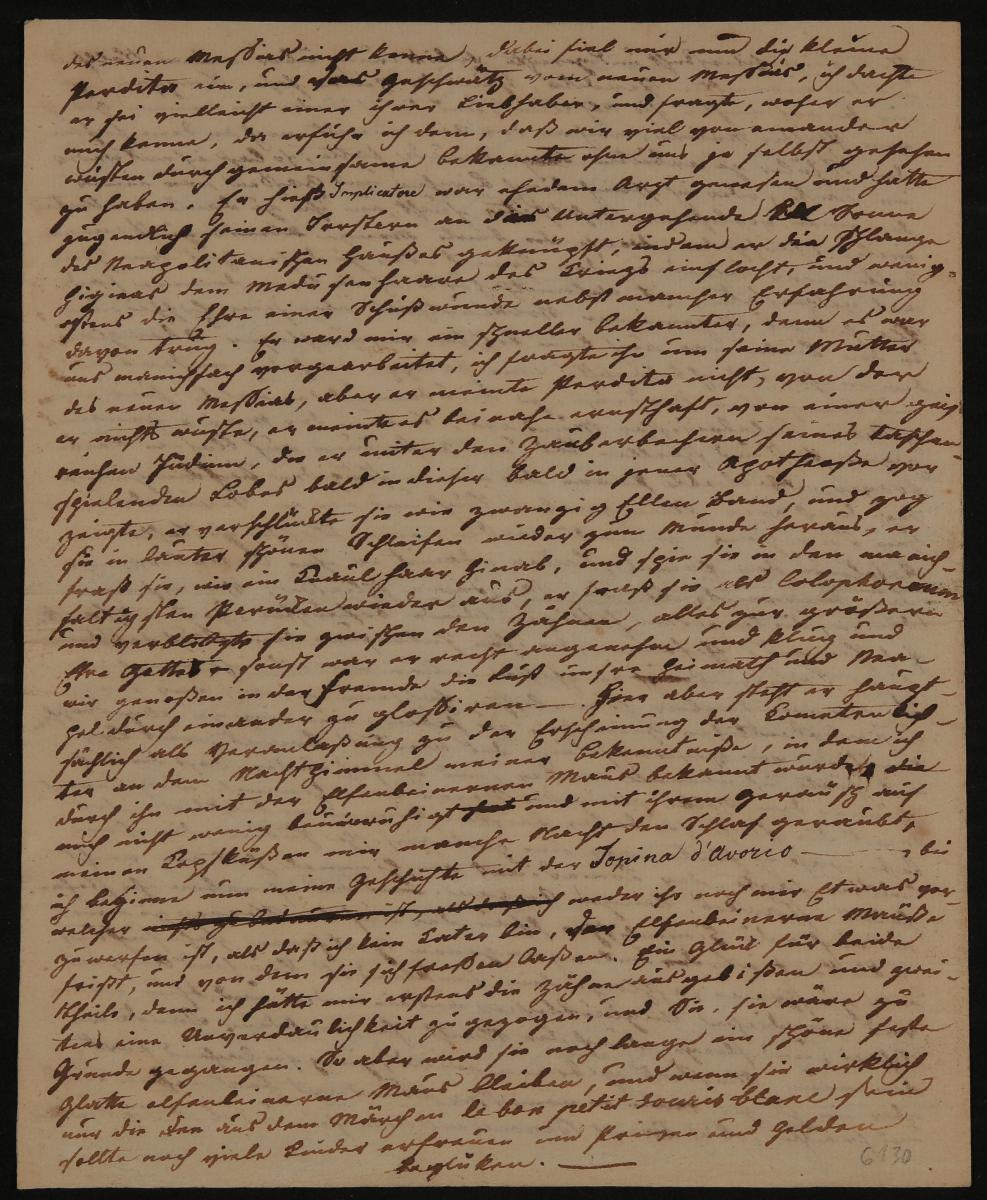 des neuen Messias nicht kenne, dabei fiel mir nun die kleine
Perdita ein, und das Geschwätz vom neuen Messias, ich dachte
er sei vielleicht einer ihrer Liebhaber, und fragte, woher er
mich kenne, da erfuhr ich denn, daß wir viel von einander
wusten durch gemeinsame bekannte ohne uns je selbst gesehen
zu haben. Er hieß Implicatore war ehedem Arzt gewesen und hatte
jugendlich seinen Irrstern an die Untergehende Sonne
des Neapolitanischen Haußes geknüpft, indem er die Schlange
Higieas dem Medusenhaare des Kriegs einflocht, und wenig-
stens die Ehre einer Schußwunde nebst mancher Erfahrung
davon trug. Er ward mir ein schneller bekannter, denn es war
uns manigfach vorgearbeitet, ich fragte ihn um seine Mutter
des neuen Messias, aber er meinte Perdita nicht, von der
er nichts wuste, er meinte es beinahe ernsthaft, von einer geist
reichen Jüdinn, die er unter den Zauberbechern seines Taschen-
spielenden Lobes bald in dieser bald in jener Apotheose vor
zeigte, er verschluckte sie wie zwanzig Ellen Band, und zog
sie in lauter schönen Schleifen wieder zum Munde heraus, er
fraß sie, wie ein Knaul Haar hinab, und spie sie in den manich-
faltigsten Perücken wieder aus, er fraß sie als Colophonium
und sie zwischen den Zähnen, alles zur größern
Ehre Gottes – sonst war er recht angenehm und klug und
wir genoßen in der Fremde die Lust unsre Heimath und Nea-
pel durch einander zu glossiren —. Hier aber steht er haupt-
sächlich als Veranlaßung zu der Erscheinung der Cometenlich-
ter an dem Nachthimmel meiner bekenntniße, in dem ich
durch ihn mit der Elfenbeinernen Maus bekannt wurde, die
mich nicht wenig beunruhigt und mit ihrem Geräusch auf
meinen Kopfküßen mir manche Nacht den Schlaf geraubt,
ich beginne nun meine Geschichte mit der Topina d'avorio —, bei
welcher weder ihr noch mir Etwas vor-
zuwerfen ist, als daß ich kein Kater bin, der Elfenbeinerne Mäuße
frißt, und von dem sie sich freßen laßen. Ein Glück für beide
Theile, denn ich hätte mir erstens die Zähne ausgebißen und zwei-
tens eine Unverdaulichkeit zugezogen, und Sie, sie wäre zu
Grunde gegangen. So aber wird sie noch lange ein schöne feste
glatte elfenbeinerne Maus bleiben, und wenn sie wirklich
nur die Fee aus dem Märchen le bon petit souris blanc sein
sollte noch viele Kinder erfreuen um Prinzen und Helden
beglüken. —
6130